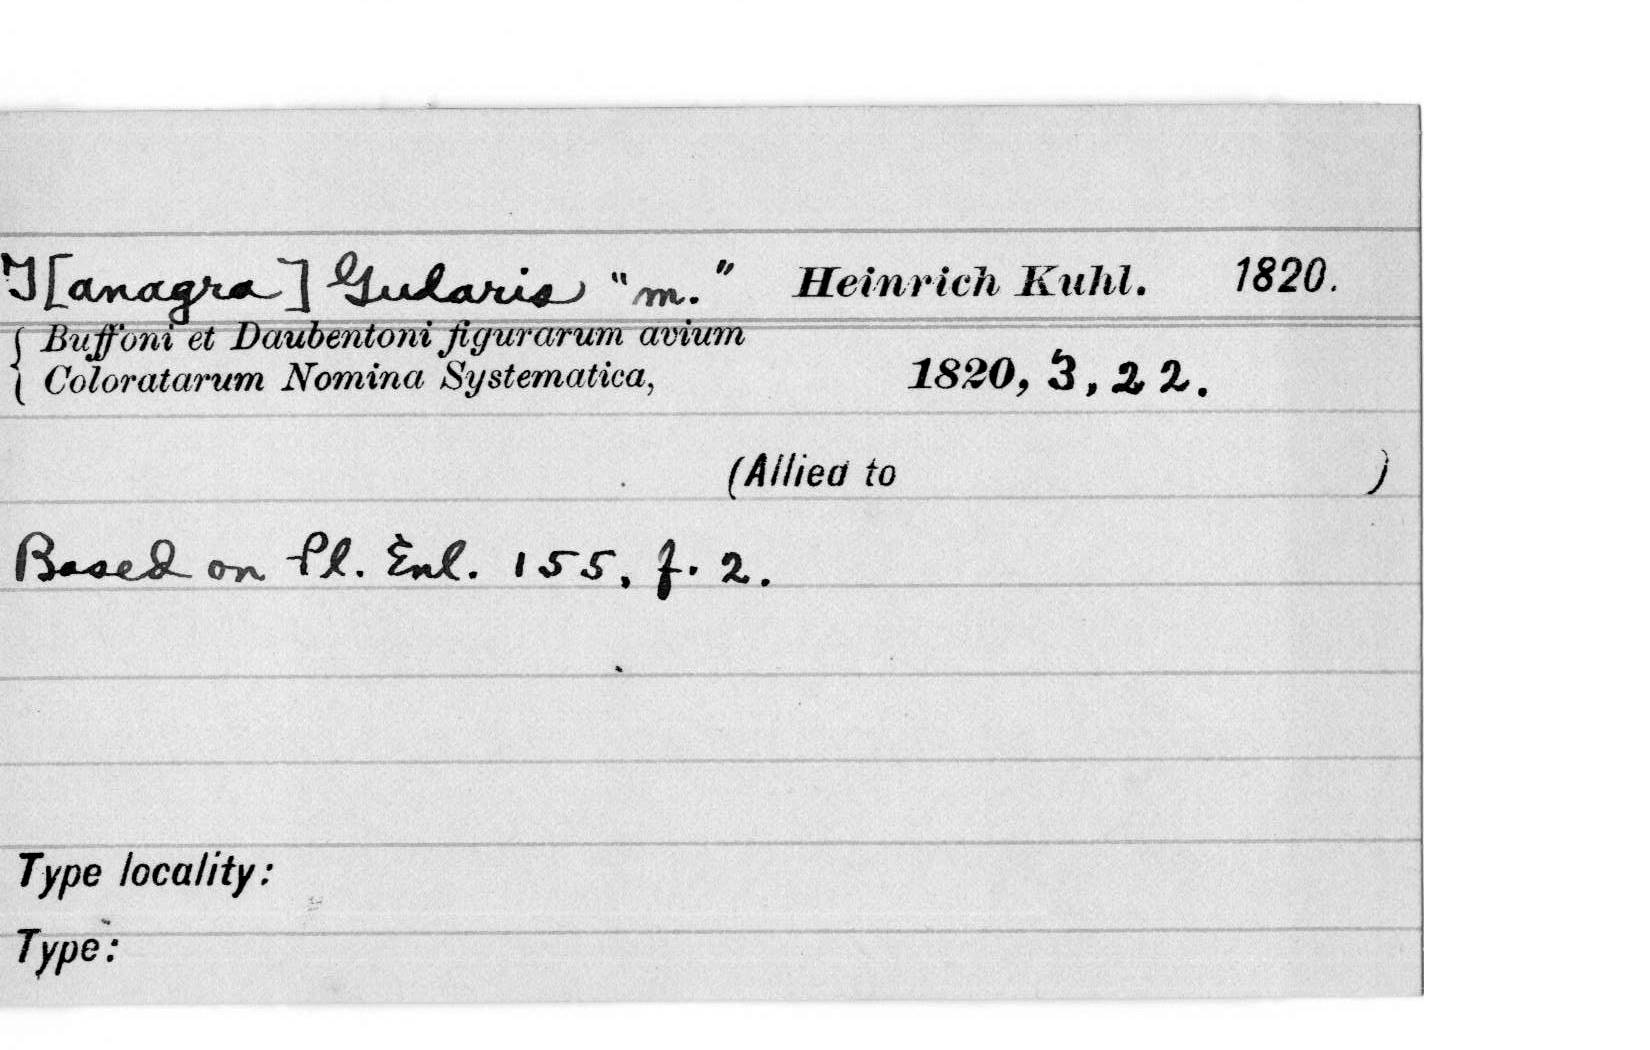 T[anagra] Gularis "m." Heinrich Kuhl. 1820.
Buffoni et Daubentoni figurarum avium
Coloratarum Nomina Systematica, 1820, 3, 22.
(Allied to )
Based on Pl. Enl. 155, f. 2.
Type locality:
Type: